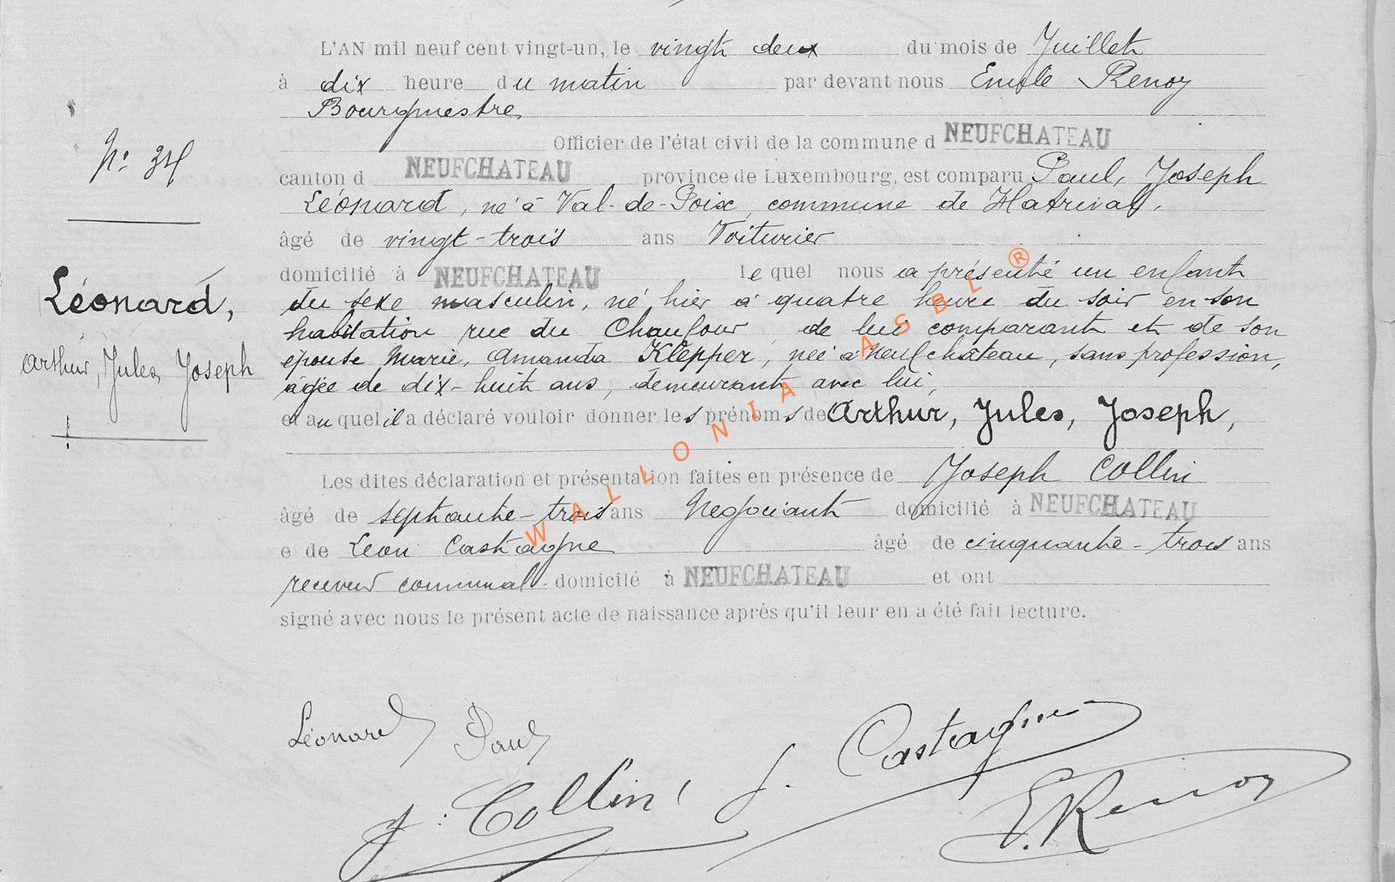 L'AN mil neuf cent vingt-un, le vingt deux du mois de Juillet
à dix heure du matin par devant nous Emile Renoy
Bourgmestre
Officier de l'état civil de la commune d NEUFCHATEAU
canton d NEUFCHATEAU province de Luxembourg, est comparu Paul, Joseph
Léonard, né à Val-de-Poix, commune de Hatrival,
âgé de vingt-trois ans Voiturier
domicilié à NEUFCHATEAU lequel nous a présenté un enfant
du sexe masculin, né hier à quatre heure du soir en son
habitation rue du Chaufour de lui comparant et de son
épouse Marie, Amanda Klepper, née à Neufchâteau, sans profession,
âgée de dix-huit ans, demeurant avec lui,
et auquel il a déclaré vouloir donner les prénoms de Arthur, Jules, Joseph,
Les dites déclaration et présentation faites en présence de Joseph Collin
âgé de septante-trois ans Négociant domicilié à NEUFCHATEAU
e de Léon Castagne âgé de cinquante-trois ans
receveur communal domicilié à NEUFCHATEAU et ont
signé avec nous le présent acte de naissance après qu'il leur en a été fait lecture.
Nº
Léonard,
Arthur, Jules, Joseph
WALLONIA ASBL ®
Léonard Paul
J. Collin
Castagne
E. Renoy